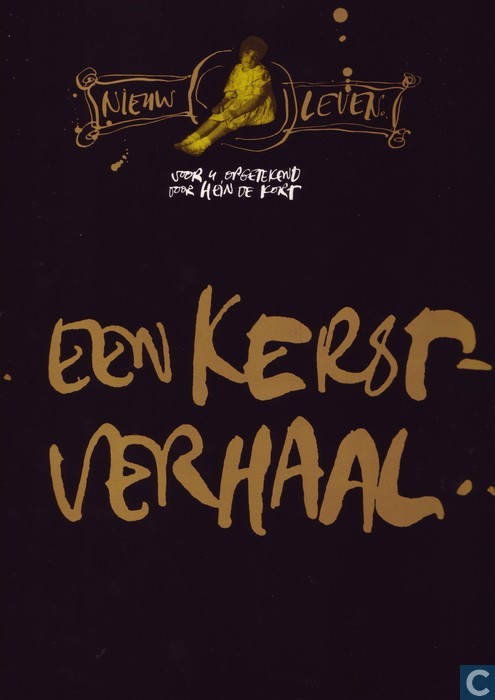 NIEUW LEVEN.
VOOR U OPGETEKEND
DOOR HEIN DE KORT
EEN KERST-
VERHAAL..
C